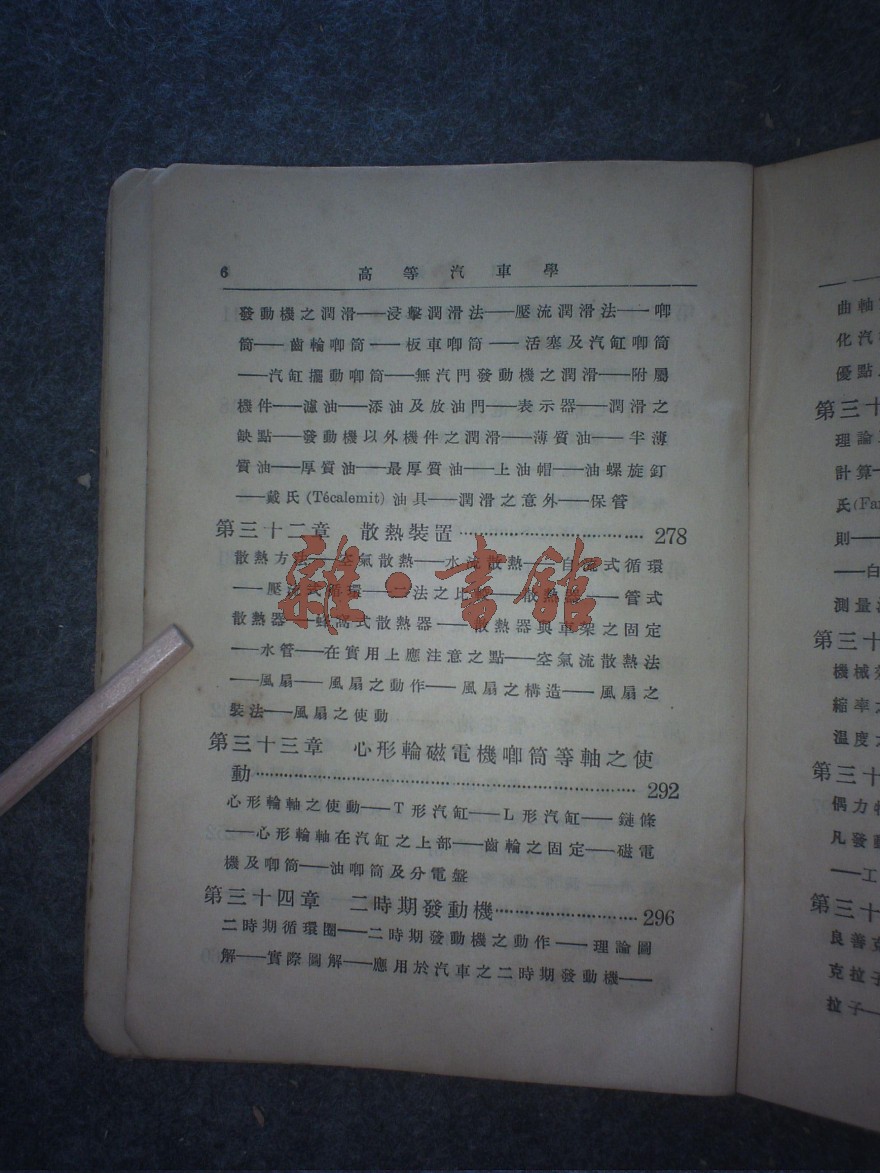 6 高等汽車學
發動機之潤滑——浸擊潤滑法——壓流潤滑法——唧
筒——齒輪唧筒——板車唧筒——活塞及汽缸唧筒
——汽缸擺動唧筒——無汽門發動機之潤滑——附屬
機件——濾油——添油及放油門——表示器——潤滑之
缺點——發動機以外機件之潤滑——薄質油——半薄
質油——厚質油——最厚質油——上油帽——油螺旋釘
——戴氏(Técalemit)油具——潤滑之意外——保管
第三十二章 散熱裝置 278
散熱方法——空氣散熱——水流散熱——自流式循環
——壓流式循環——二法之比較——散熱器——管式
散熱器——蜂窩式散熱器——散熱器與車架之固定
——水管——在實用上應注意之點——空氣流散熱法
——風扇——風扇之動作——風扇之構造——風扇之
裝法——風扇之使動
第三十三章 心形輪磁電機唧筒等軸之使
動 292
心形輪軸之使動——T形汽缸——L形汽缸——鏈條
——心形輪軸在汽缸之上部——齒輪之固定——磁電
機及唧筒——油唧筒及分電盤
第三十四章 二時期發動機 296
二時期循環圈——二時期發動機之動作——理論圖
解——實際圖解——應用於汽車之二時期發動機——
雜·書館
曲軸
化汽
優點
第三十
理論
計算
氏(Fa
則——
——白
測量
第三十
機械
縮率
溫度
第三十
偶力
凡發動
——工
第三十
良善克
克拉子
拉子